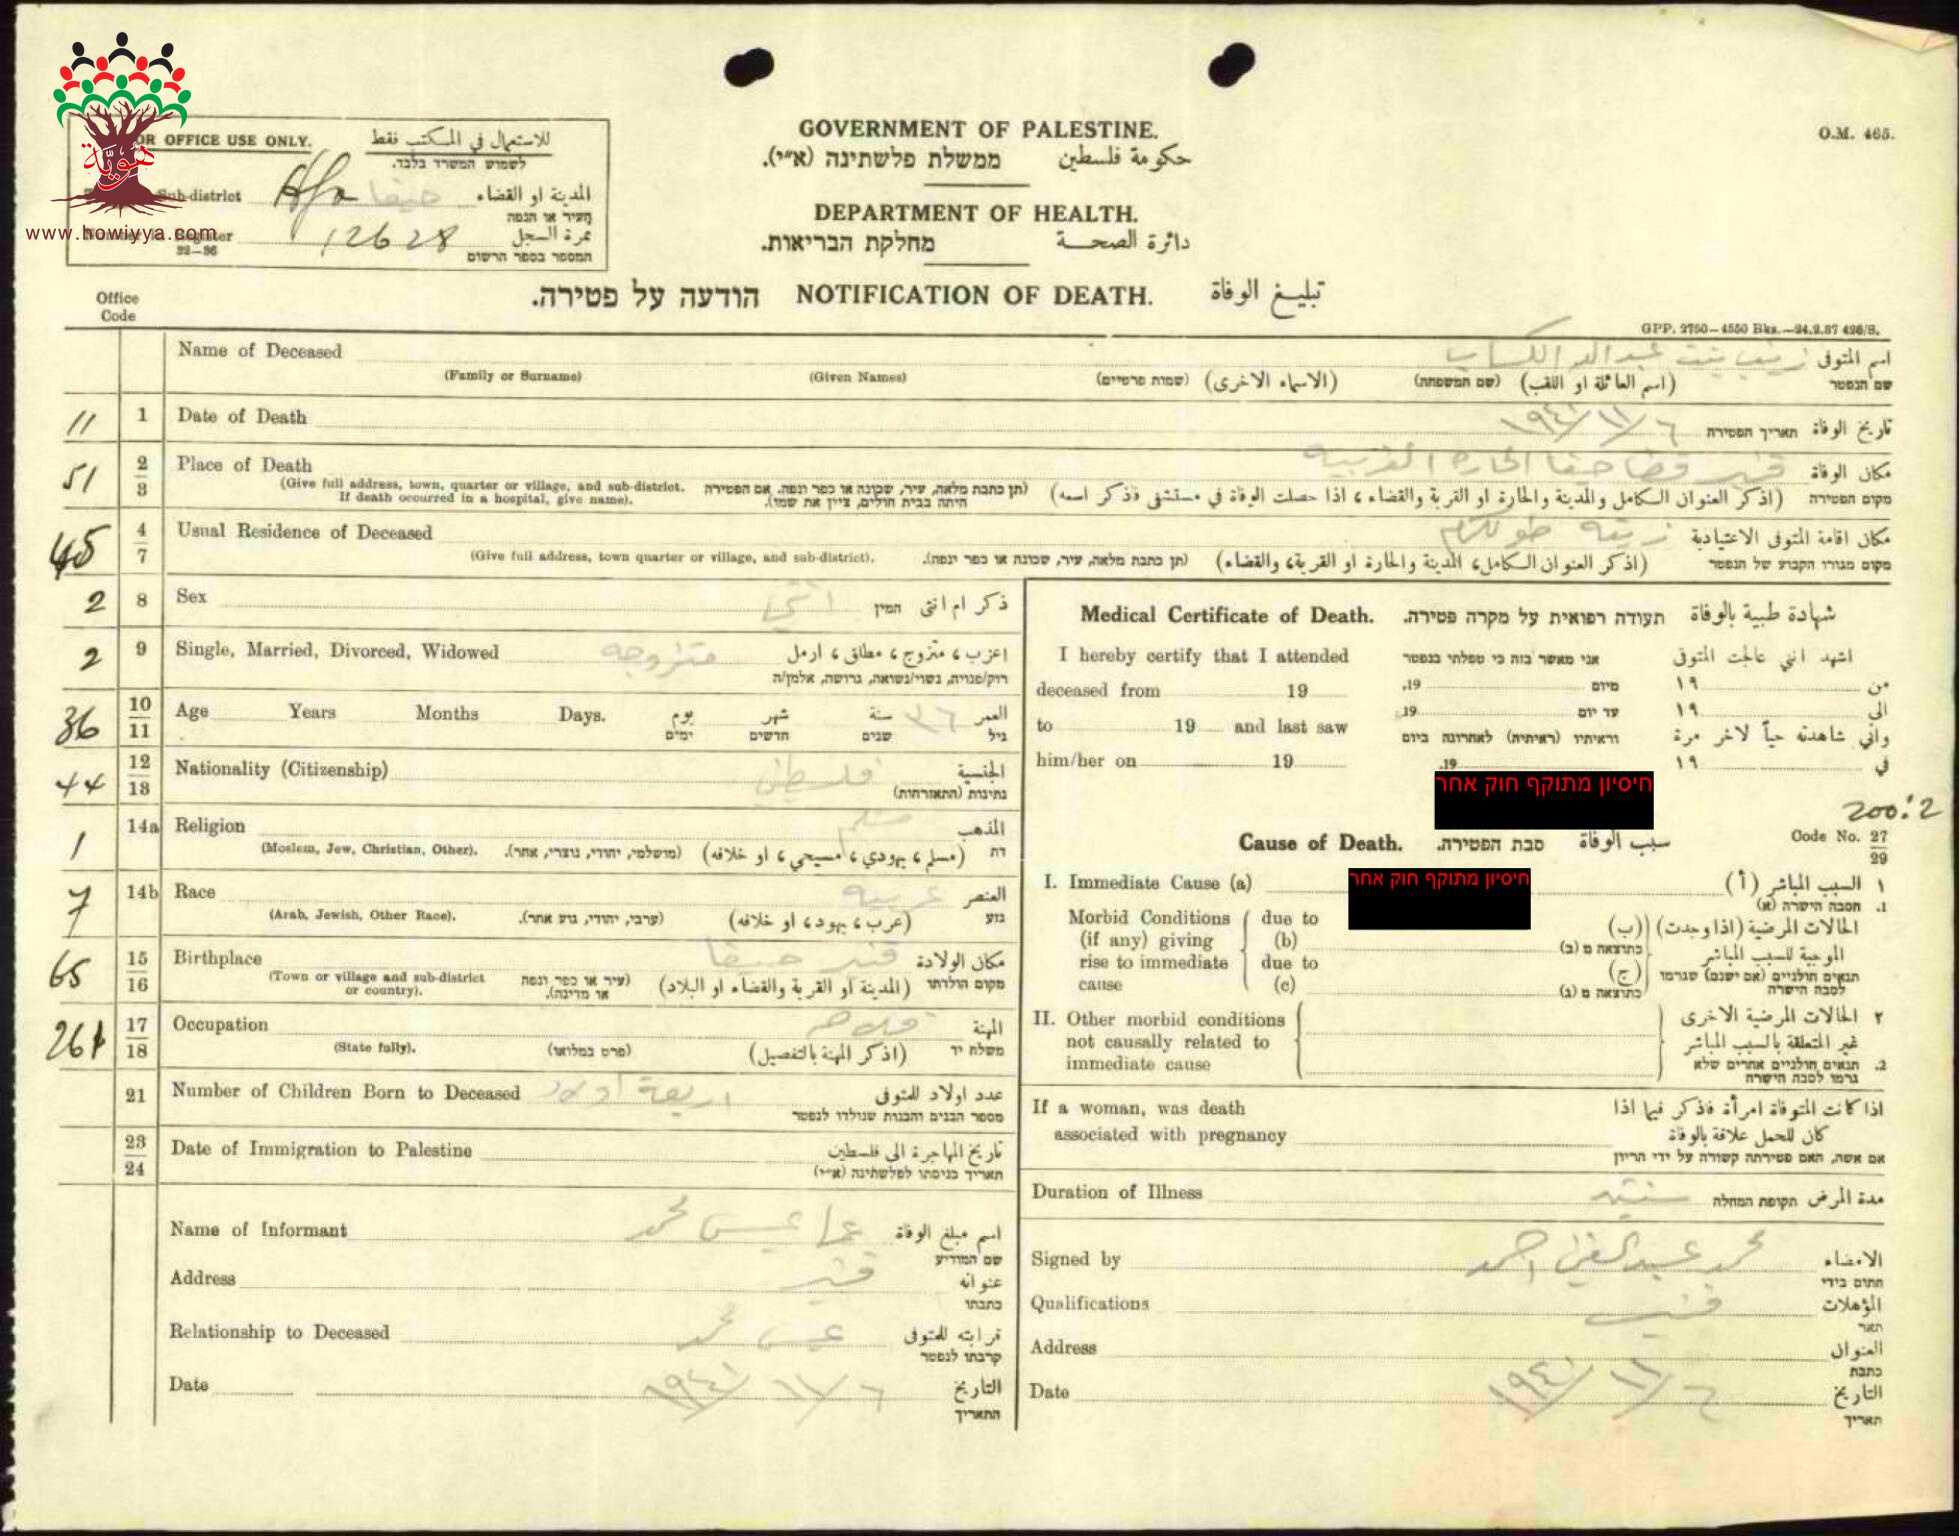 GOVERNMENT OF PALESTINE.
حكومة فلسطين ממשלת פלשתינה (א״י).
DEPARTMENT OF HEALTH.
دائرة الصحة מחלקת הבריאות.
O.M. 465.
OR OFFICE USE ONLY. للاستعمال في المكتب فقط
לשמוש המשרד בלבד.
Sub-district حيفا المدينة او القضاء
העיר או הנפה
هوية
www.howiyya.com
12628 نمرة السجل
22—36 המספר בספר הרשום
הודעה על פטירה. NOTIFICATION OF DEATH. تبليغ الوفاة
Office
Code
GPP. 2750—4550 Bks.—24.2.37 426/S.
Name of Deceased زينب بنت عبدالله اسم المتوفى
(Family or Surname) (Given Names) (שמות פרטיים) (الاسماء الاخرى) (שם המשפחה) (اسم العائلة او اللقب) שם הנפטר
11 1 Date of Death ٦/١١/١٩٤١ תאריך הפטירה تاريخ الوفاة
51 2 3 Place of Death قنير قضا حيفا الحاره الغربيه مكان الوفاة
(Give full address, town, quarter or village, and sub-district.
If death occurred in a hospital, give name).
(תן כתבת מלאה, עיר, שכונה או כפר ונפה. אם הפטירה
היתה בבית חולים, ציין את שמו).
(اذكر العنوان الكامل والمدينة والحارة او القرية والقضاء، اذا حصلت الوفاة في مستشفى فاذكر اسمه) מקום הפטירה
45 4 7 Usual Residence of Deceased طولكرم مكان اقامة المتوفى الاعتيادية
(Give full address, town quarter or village, and sub-district). (תן כתבת מלאה, עיר, שכונה או כפר ונפה). (اذكر العنوان الكامل، المدينة والحارة او القرية، والقضاء) מקום מגורו הקבוע של הנפטר
2 8 Sex انثى המין ذكر ام انثى
2 9 Single, Married, Divorced, Widowed متزوجه اعزب، متزوج، مطلق، ارمل
רוק/פנויה, נשוי/נשואה, גרוש/ה, אלמן/ה
36 10 11 Age Years Months Days. يوم شهر سنة ٣٦ العمر
ימים חדשים שנים גיל
44 12 13 Nationality (Citizenship) فلسطيني الجنسية
נתינות (התאזרחות)
1 14a Religion مسلم المذهب
(Moslem, Jew, Christian, Other). (מושלמי, יהודי, נוצרי, אחר). (مسلم، يهودي، مسيحي، او خلافه) דת
7 14b Race عربيه العنصر
(Arab, Jewish, Other Race). (ערבי, יהודי, גזע אחר). (عرب، يهود، او خلافه) גזע
65 15 16 Birthplace قنير حيفا مكان الولادة
(Town or village and sub-district
or country).
(עיר או כפר ונפה
או מדינה).
(المدينة او القرية والقضاء او البلاد) מקום הולדתו
261 17 18 Occupation فلاحه المهنة
(State fully). (פרט במלואו) (اذكر المهنة بالتفصيل) משלח יד
21 Number of Children Born to Deceased اربعة اولاد عدد اولاد للمتوفى
מספר הבנים והבנות שנולדו לנפטר
23 24 Date of Immigration to Palestine تاريخ المهاجرة الى فلسطين
תאריך כניסתו לפלשתינה (א״י)
Name of Informant محمد اسم مبلغ الوفاة
שם המודיע
Address قنير عنوانه
כתבתו
Relationship to Deceased محمد قرابته للمتوفى
קרבתו לנפטר
Date ٦/١١/١٩٤١ التاريخ
התאריך
Medical Certificate of Death. תעודה רפואית על מקרה פטירה. شهادة طبية بالوفاة
I hereby certify that I attended אני מאשר בזה כי טפלתי בנפטר اشهد انني عالجت المتوفى
deceased from 19 19, מיום ١٩ من
to 19 and last saw 19 עד יום ١٩ الى
וראיתיו (ראיתיה) לאחרונה ביום واني شاهدته حياً لاخر مرة
him/her on 19 19. ١٩ في
חיסיון מתוקף חוק אחר
200:2
Cause of Death. סבת הפטירה. سبب الوفاة Code No. 27 29
I. Immediate Cause (a) חיסיון מתוקף חוק אחר ١ السبب المباشر (أ)
1. הסבה הישרה (א)
Morbid Conditions due to
(if any) giving (b)
rise to immediate due to
cause (c)
الحالات المرضية (اذا وجدت) (ب)
כתוצאה מ (ב)
الموجبة للسبب المباشر
תנאים חולניים (אם ישנם) שגרמו (ج)
לסבה הישרה כתוצאה מ (ג)
II. Other morbid conditions
not causally related to
immediate cause
٢ الحالات المرضية الاخرى
غير المتعلقة بالسبب المباشر
2. תנאים חולניים אחרים שלא
גרמו לסבה הישרה
If a woman, was death اذا كانت المتوفاة امرأة فاذكر فيما اذا
associated with pregnancy كان للحمل علاقة بالوفاة
אם אשה, האם פטירתה קשורה על ידי הריון
Duration of Illness תקופת המחלה مدة المرض
Signed by محمد عبد الغني احمد الامضاء
חתום בידי
Qualifications قنير المؤهلات
תאר
Address العنوان
כתבת
Date ٦/١١/١٩٤١ التاريخ
תאריך